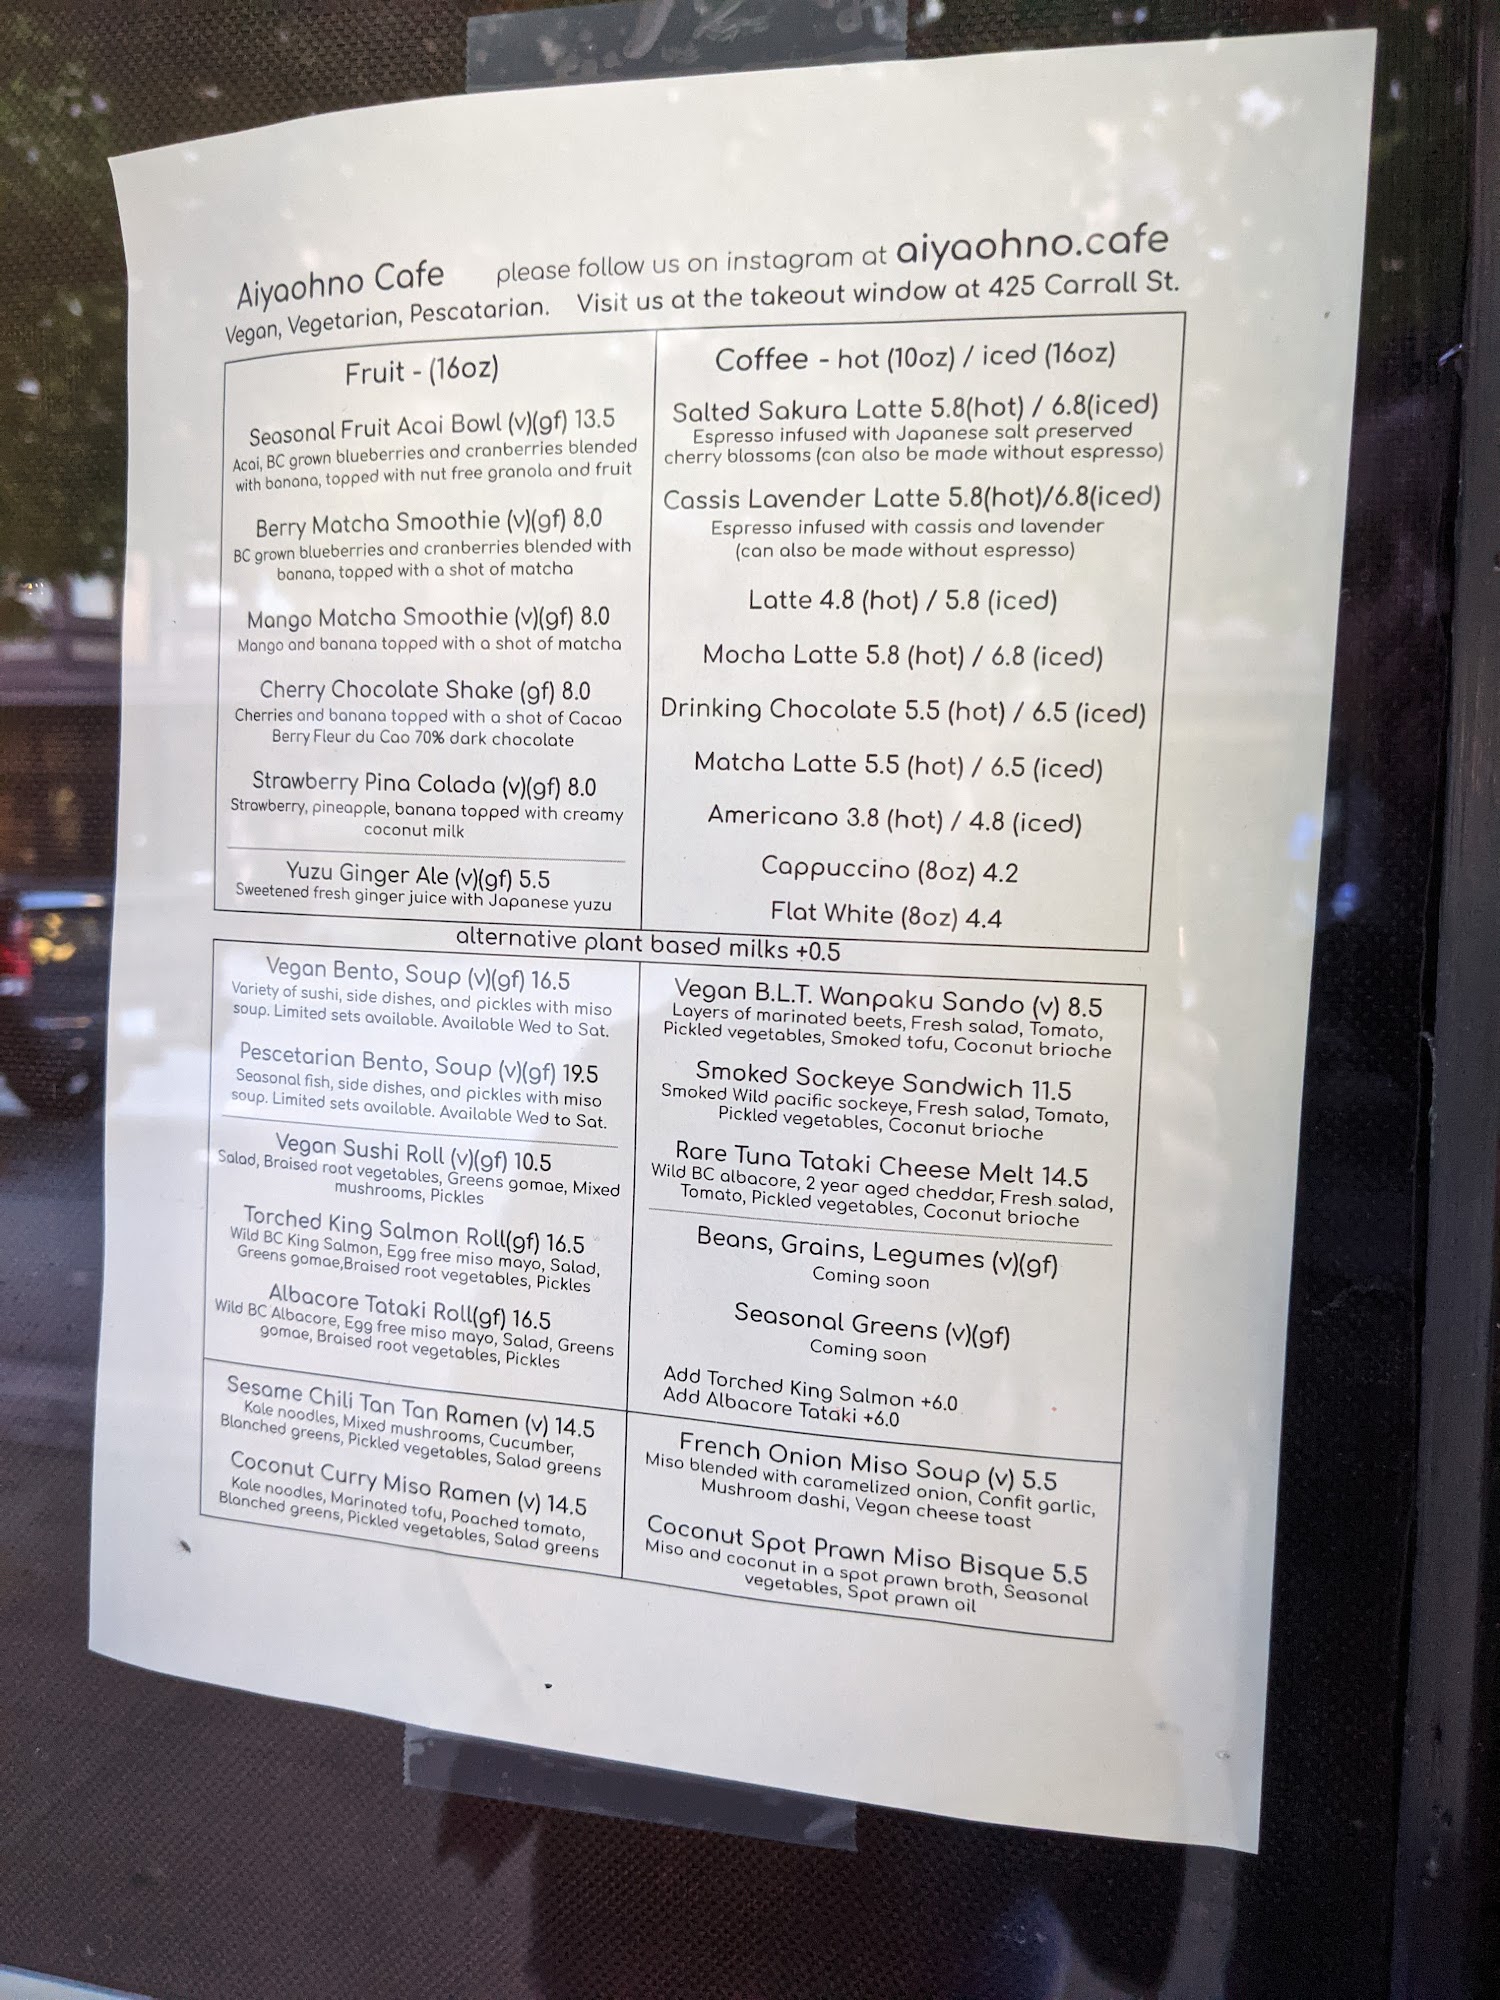 Aiyaohno Cafe please follow us on instagram at aiyaohno.cafe
Vegan, Vegetarian, Pescatarian. Visit us at the takeout window at 425 Carrall St.
Fruit - (16oz)
Seasonal Fruit Acai Bowl (v)(gf) 13.5
Acai, BC grown blueberries and cranberries blended
with banana, topped with nut free granola and fruit
Berry Matcha Smoothie (v)(gf) 8.0
BC grown blueberries and cranberries blended with
banana, topped with a shot of matcha
Mango Matcha Smoothie (v)(gf) 8.0
Mango and banana topped with a shot of matcha
Cherry Chocolate Shake (gf) 8.0
Cherries and banana topped with a shot of Cacao
Berry Fleur du Cao 70% dark chocolate
Strawberry Pina Colada (v)(gf) 8.0
Strawberry, pineapple, banana topped with creamy
coconut milk
Yuzu Ginger Ale (v)(gf) 5.5
Sweetened fresh ginger juice with Japanese yuzu
Coffee - hot (10oz) / iced (16oz)
Salted Sakura Latte 5.8(hot) / 6.8(iced)
Espresso infused with Japanese salt preserved
cherry blossoms (can also be made without espresso)
Cassis Lavender Latte 5.8(hot)/6.8(iced)
Espresso infused with cassis and lavender
(can also be made without espresso)
Latte 4.8 (hot) / 5.8 (iced)
Mocha Latte 5.8 (hot) / 6.8 (iced)
Drinking Chocolate 5.5 (hot) / 6.5 (iced)
Matcha Latte 5.5 (hot) / 6.5 (iced)
Americano 3.8 (hot) / 4.8 (iced)
Cappuccino (8oz) 4.2
Flat White (8oz) 4.4
alternative plant based milks +0.5
Vegan Bento, Soup (v)(gf) 16.5
Variety of sushi, side dishes, and pickles with miso
soup. Limited sets available. Available Wed to Sat.
Pescetarian Bento, Soup (v)(gf) 19.5
Seasonal fish, side dishes, and pickles with miso
soup. Limited sets available. Available Wed to Sat.
Vegan Sushi Roll (v)(gf) 10.5
Salad, Braised root vegetables, Greens gomae, Mixed
mushrooms, Pickles
Torched King Salmon Roll(gf) 16.5
Wild BC King Salmon, Egg free miso mayo, Salad,
Greens gomae,Braised root vegetables, Pickles
Albacore Tataki Roll(gf) 16.5
Wild BC Albacore, Egg free miso mayo, Salad, Greens
gomae, Braised root vegetables, Pickles
Sesame Chili Tan Tan Ramen (v) 14.5
Kale noodles, Mixed mushrooms, Cucumber,
Blanched greens, Pickled vegetables, Salad greens
Coconut Curry Miso Ramen (v) 14.5
Kale noodles, Marinated tofu, Poached tomato,
Blanched greens, Pickled vegetables, Salad greens
Vegan B.L.T. Wanpaku Sando (v) 8.5
Layers of marinated beets, Fresh salad, Tomato,
Pickled vegetables, Smoked tofu, Coconut brioche
Smoked Sockeye Sandwich 11.5
Smoked Wild pacific sockeye, Fresh salad, Tomato,
Pickled vegetables, Coconut brioche
Rare Tuna Tataki Cheese Melt 14.5
Wild BC albacore, 2 year aged cheddar, Fresh salad,
Tomato, Pickled vegetables, Coconut brioche
Beans, Grains, Legumes (v)(gf)
Coming soon
Seasonal Greens (v)(gf)
Coming soon
Add Torched King Salmon +6.0
Add Albacore Tataki +6.0
French Onion Miso Soup (v) 5.5
Miso blended with caramelized onion, Confit garlic,
Mushroom dashi, Vegan cheese toast
Coconut Spot Prawn Miso Bisque 5.5
Miso and coconut in a spot prawn broth, Seasonal
vegetables, Spot prawn oil